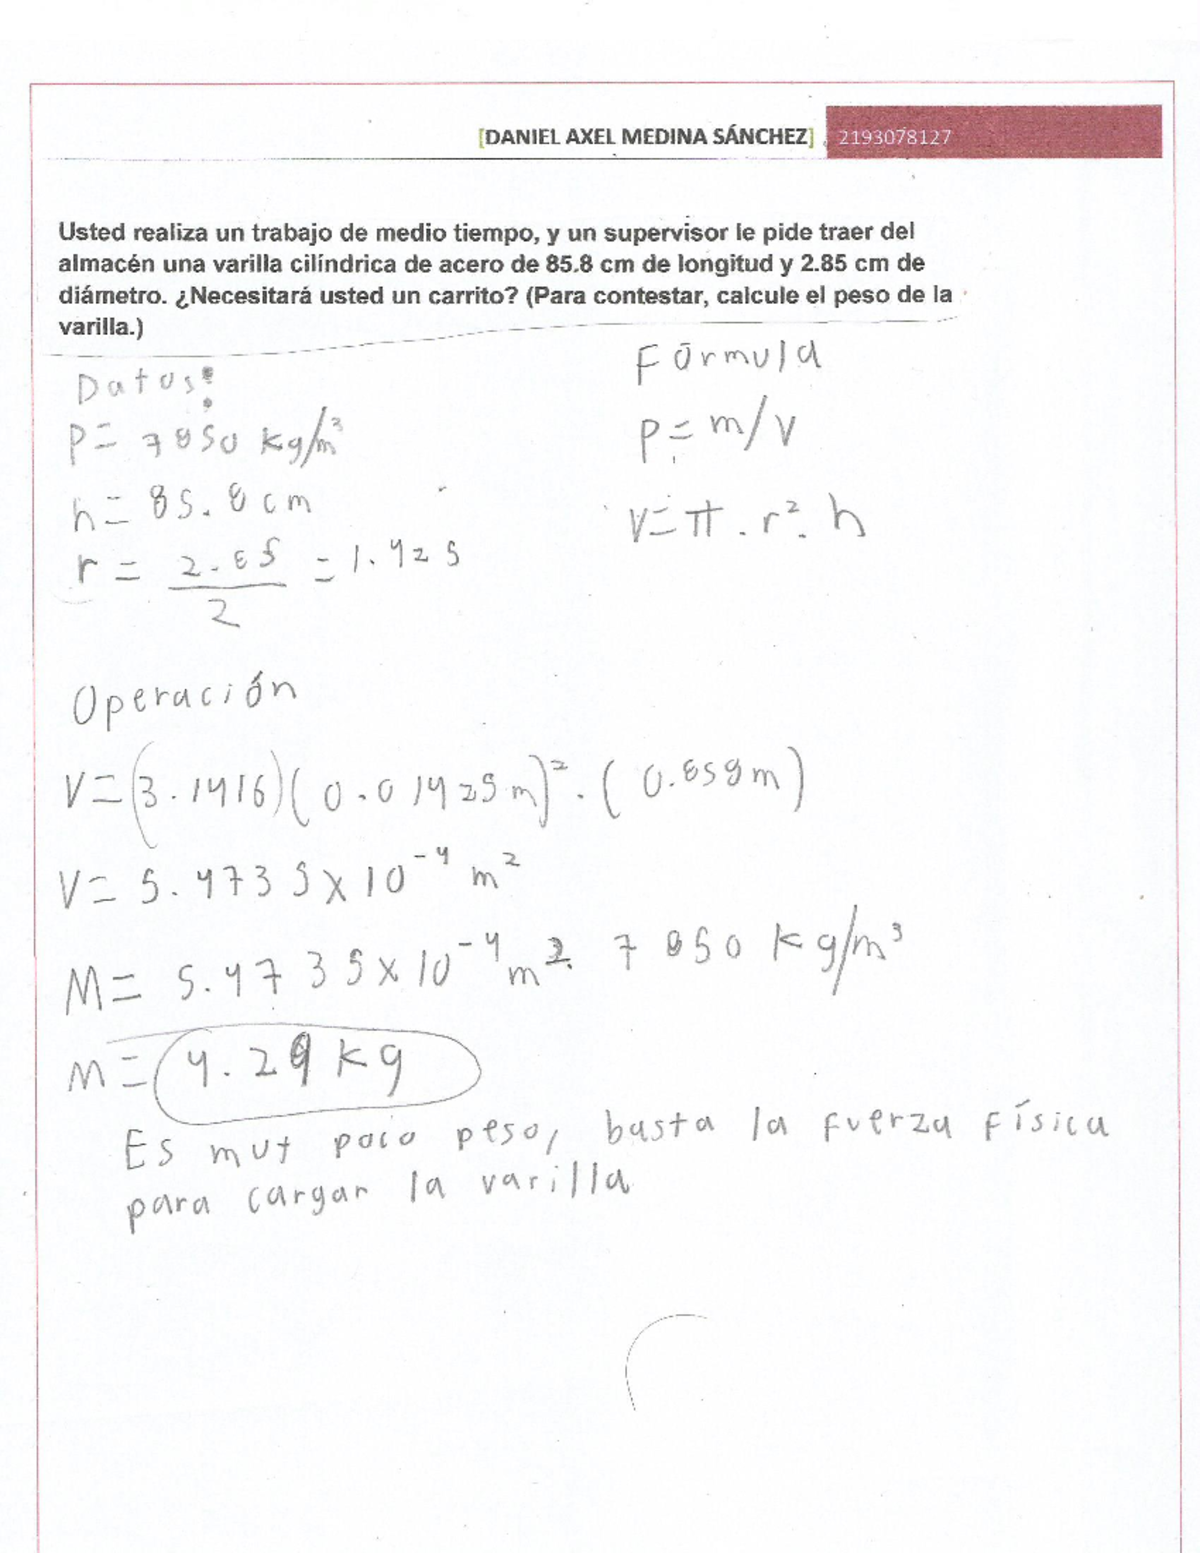 [DANIEL AXEL MEDINA SÁNCHEZ] . 2193078127
Usted realiza un trabajo de medio tiempo, y un supervisor le pide traer del
almacén una varilla cilíndrica de acero de 85.8 cm de longitud y 2.85 cm de
diámetro. ¿Necesitará usted un carrito? (Para contestar, calcule el peso de la
varilla.)
Datos:
P= 7850 kg/m³
h= 85.8 cm
r = 2.85/2 = 1.425
Fórmula
P= m/v
V= π . r². h
Operación
V= (3.1416)(0.01425m)². (0.858m)
V= 5.4735x10⁻⁴ m²
M= 5.4735x10⁻⁴ m². 7850 kg/m³
M= 4.29 kg
Es muy poco peso, basta la fuerza física
para cargar la varilla